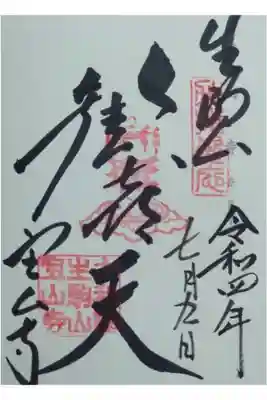 生駒山
令和四年
七月九日
歓喜天
宝山寺
生駒山
宝山寺